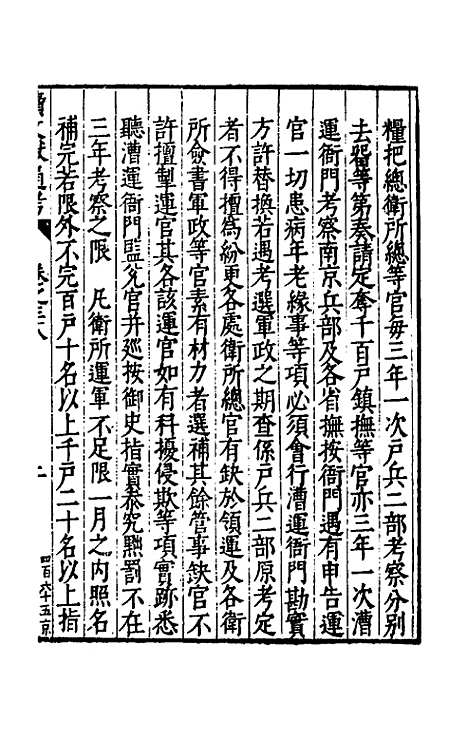 糧把總衛所總等官毎三年一次戸兵二部考察分别
去留等第奏請定奪千百戸鎮撫等官亦三年一次漕
運衙門考察南京兵部及各省撫按衙門遇有申告運
官一切患病年老緣事等項必須會行漕運衙門勘實
方許替換若遇考選軍政之期查係戸兵二部原考定
者不得擅為紛更各處衛所總官有缺於領運及各衛
所僉書軍政等官素有材力者選補其餘管事缺官不
許擅掣運官其各該運官如有科擾侵欺等項實跡悉
聽漕運衙門監兌官并廵按御史指實叅究黜罰不在
三年考察之限 凡衛所運軍不足限一月之内照名
補完若限外不完百戸十名以上千戸二十名以上指
續文獻通考 卷之三八
四百六十五京